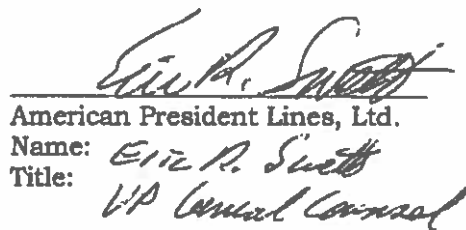 Eric R. Swett
American President Lines, Ltd.
Name: Eric R. Swett
Title:
VP General Counsel